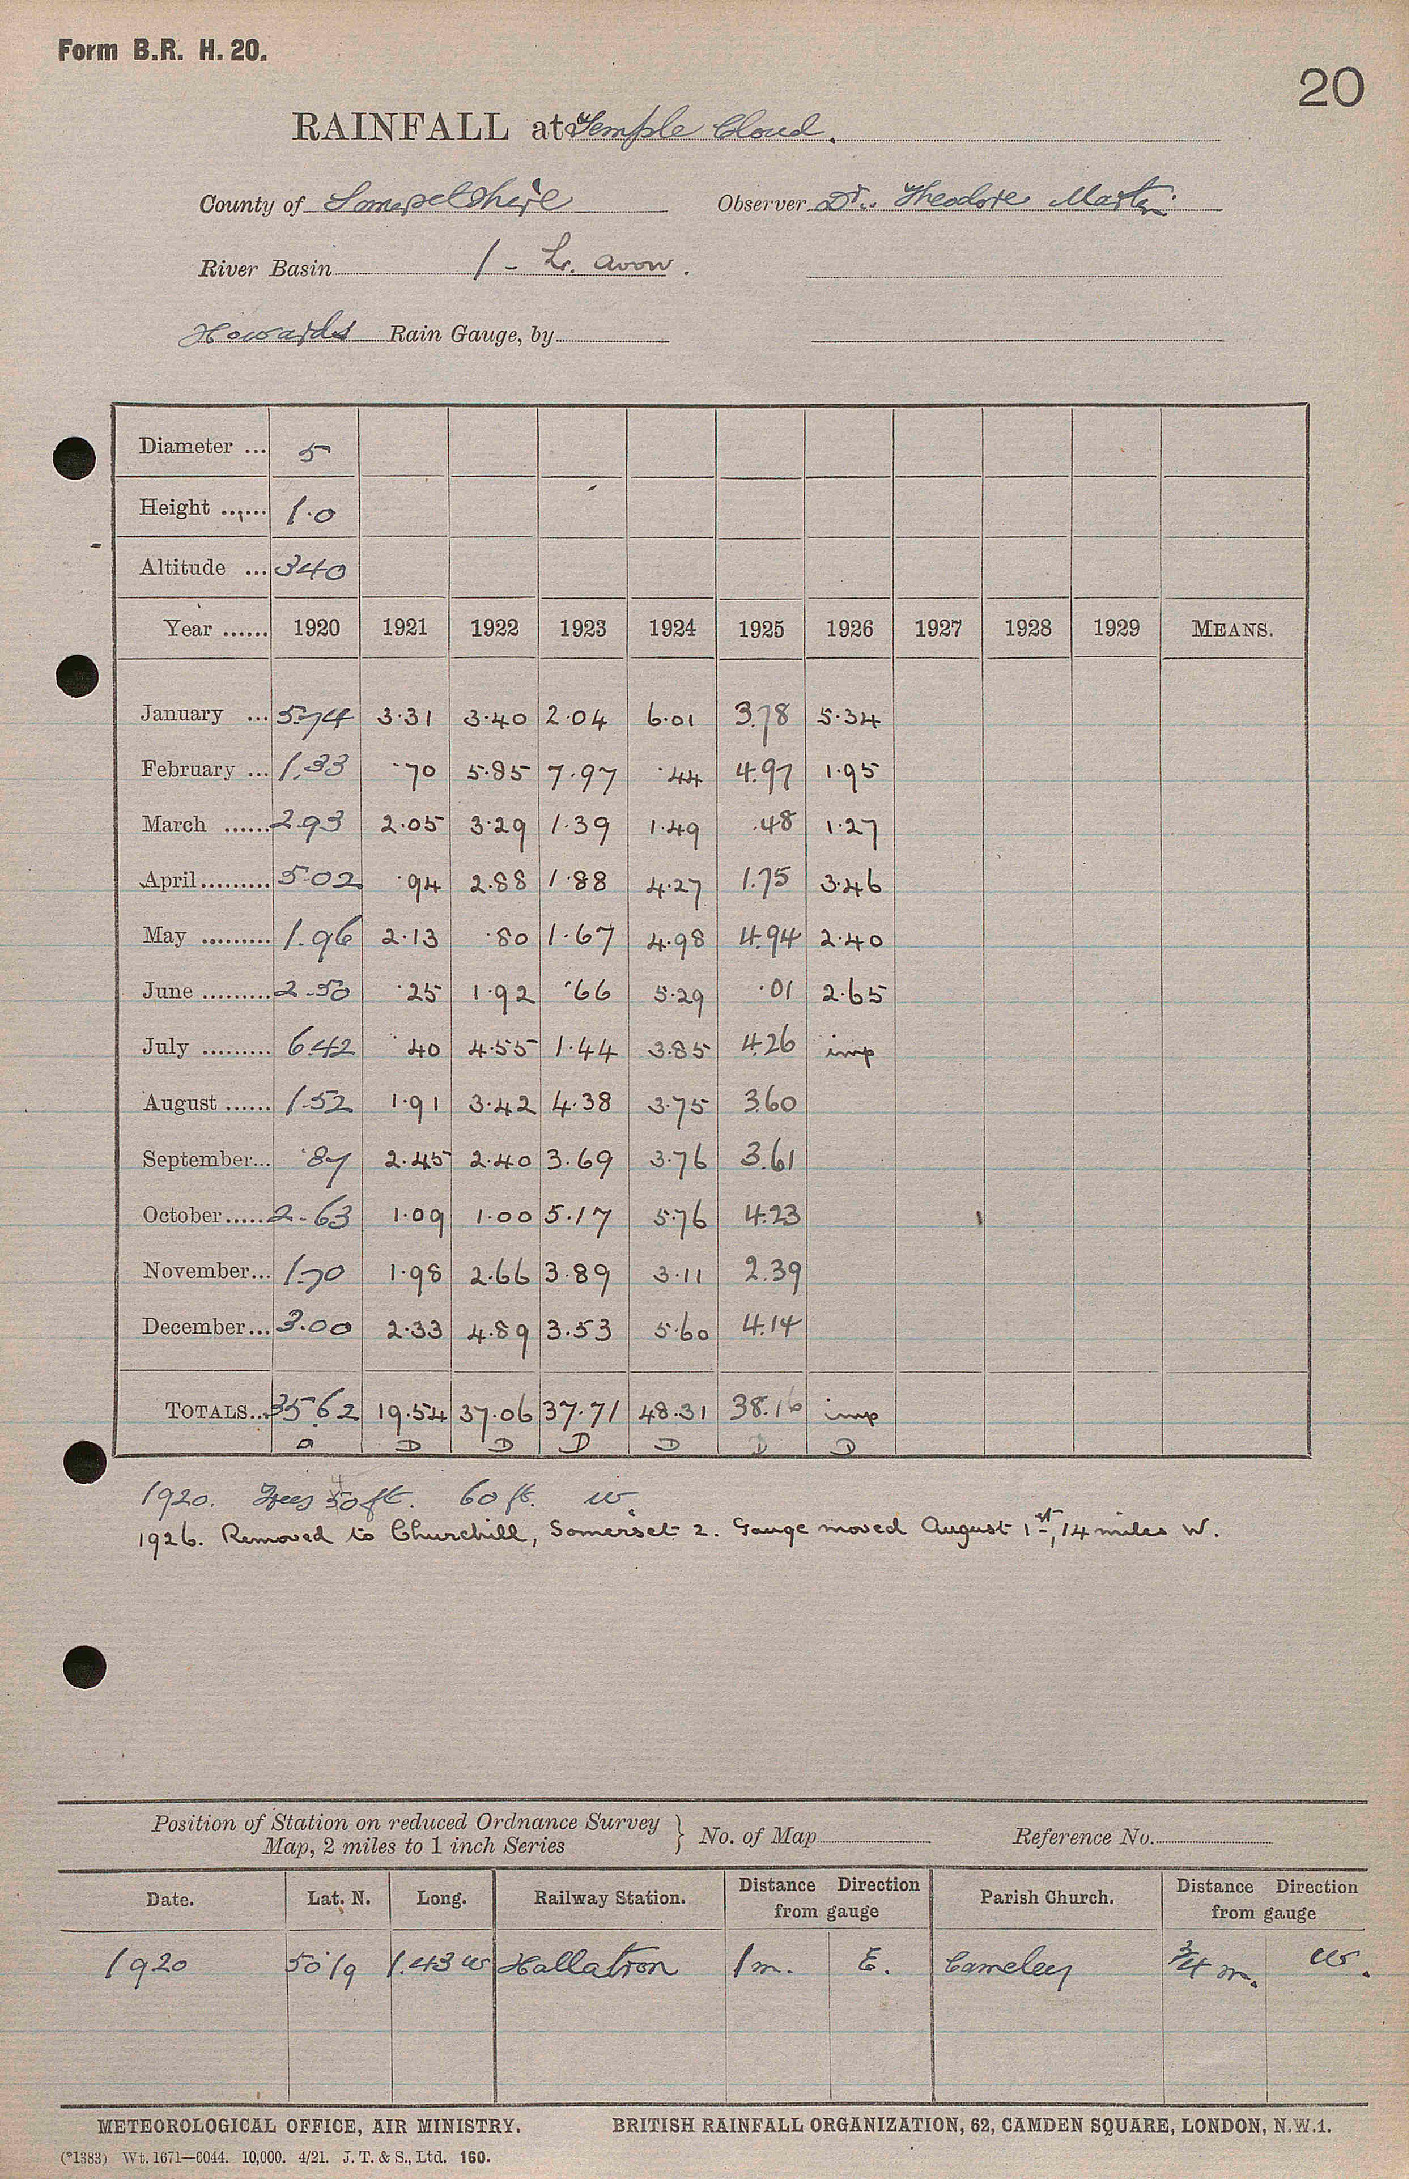 Form B.R. H. 20.
20
RAINFALL at Temple Cloud.
County of Somersetshire Observer Dr. Theodore Martin
River Basin 1 - Lr. Avon.
Howards Rain Gauge, by
Diameter ... 5
Height ...... 1.0
Altitude ... 340
Year ...... 1920 1921 1922 1923 1924 1925 1926 1927 1928 1929 MEANS.
January ... 5.74 3.31 3.40 2.04 6.01 3.78 5.34
February ... 1.33 .70 5.85 7.97 .44 4.97 1.95
March ...... 2.93 2.05 3.29 1.39 1.49 .48 1.27
April ......... 5.02 .94 2.88 1.88 4.27 1.75 3.46
May ......... 1.96 2.13 .80 1.67 4.98 4.94 2.40
June ......... 2.50 .25 1.92 .66 5.29 .01 2.65
July ......... 6.42 .40 4.55 1.44 3.85 4.26 imp
August ...... 1.52 1.91 3.42 4.38 3.75 3.60
September... .87 2.45 2.40 3.69 3.76 3.61
October...... 2.63 1.09 1.00 5.17 5.76 4.23
November... 1.70 1.98 2.66 3.89 3.11 2.39
December... 3.00 2.33 4.89 3.53 5.60 4.14
TOTALS... 35.62 19.54 37.06 37.71 48.31 38.16 imp
D D D D D D D
1920. Trees 50 ft. 60 ft. W.
1926. Removed to Churchill, Somerset 2. Gauge moved August 1st, 14 miles W.
Position of Station on reduced Ordnance Survey
Map, 2 miles to 1 inch Series } No. of Map Reference No.
Date. Lat. N. Long. Railway Station. Distance Direction from gauge Parish Church. Distance Direction from gauge
1920 50°19 1.43 W Hallatron 1 m. E. Cameley ¾ m. W.
METEOROLOGICAL OFFICE, AIR MINISTRY. BRITISH RAINFALL ORGANIZATION, 62, CAMDEN SQUARE, LONDON, N.W.1.
(*1383) Wt. 1671—6044. 10,000. 4/21. J. T. & S., Ltd. 160.